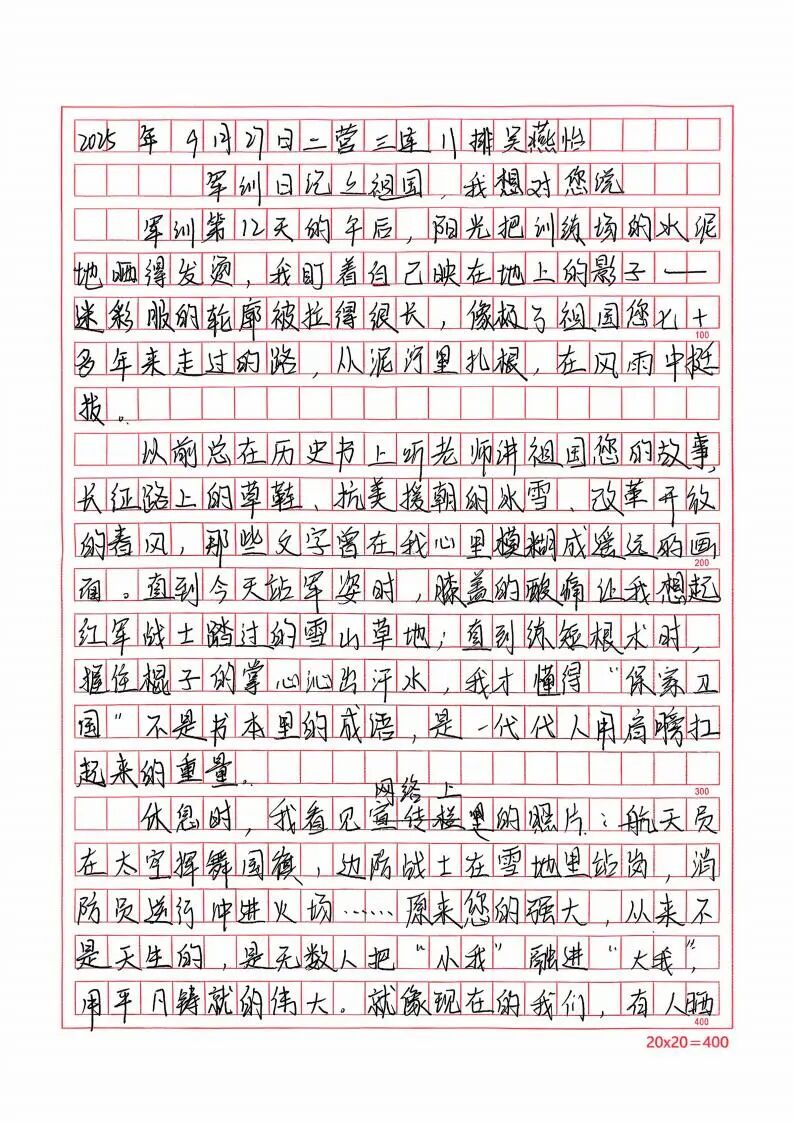 2025年9月27日二营三连八排吴燕怡
军训日记之祖国，我想对您说
军训第12天的午后，阳光把训练场的水泥
地晒得发烫，我盯着自己映在地上的影子——
迷彩服的轮廓被拉得很长，像极了祖国您七十
100
多年来走过的路，从泥泞里扎根，在风雨中挺
拔。
以前总在历史书上听老师讲祖国您的故事，
长征路上的草鞋、抗美援朝的冰雪、改革开放
的春风，那些文字曾在我心里模糊成遥远的画
200
面。直到今天站军姿时，膝盖的酸痛让我想起
红军战士踏过的雪山草地；直到练短棍术时，
握住棍子的掌心沁出汗水，我才懂得“保家卫
国”不是书本里的成语，是一代代人用肩膀扛
起来的重量。
300
网络上
休息时，我看见宣传栏里的照片：航天员
在太空挥舞国旗，边防战士在雪地里站岗，消
防员逆行冲进火场……原来您的强大，从来不
是天生的，是无数人把“小我”融进“大我”，
用平凡铸就的伟大。就像现在的我们，有人晒
400
20x20=400